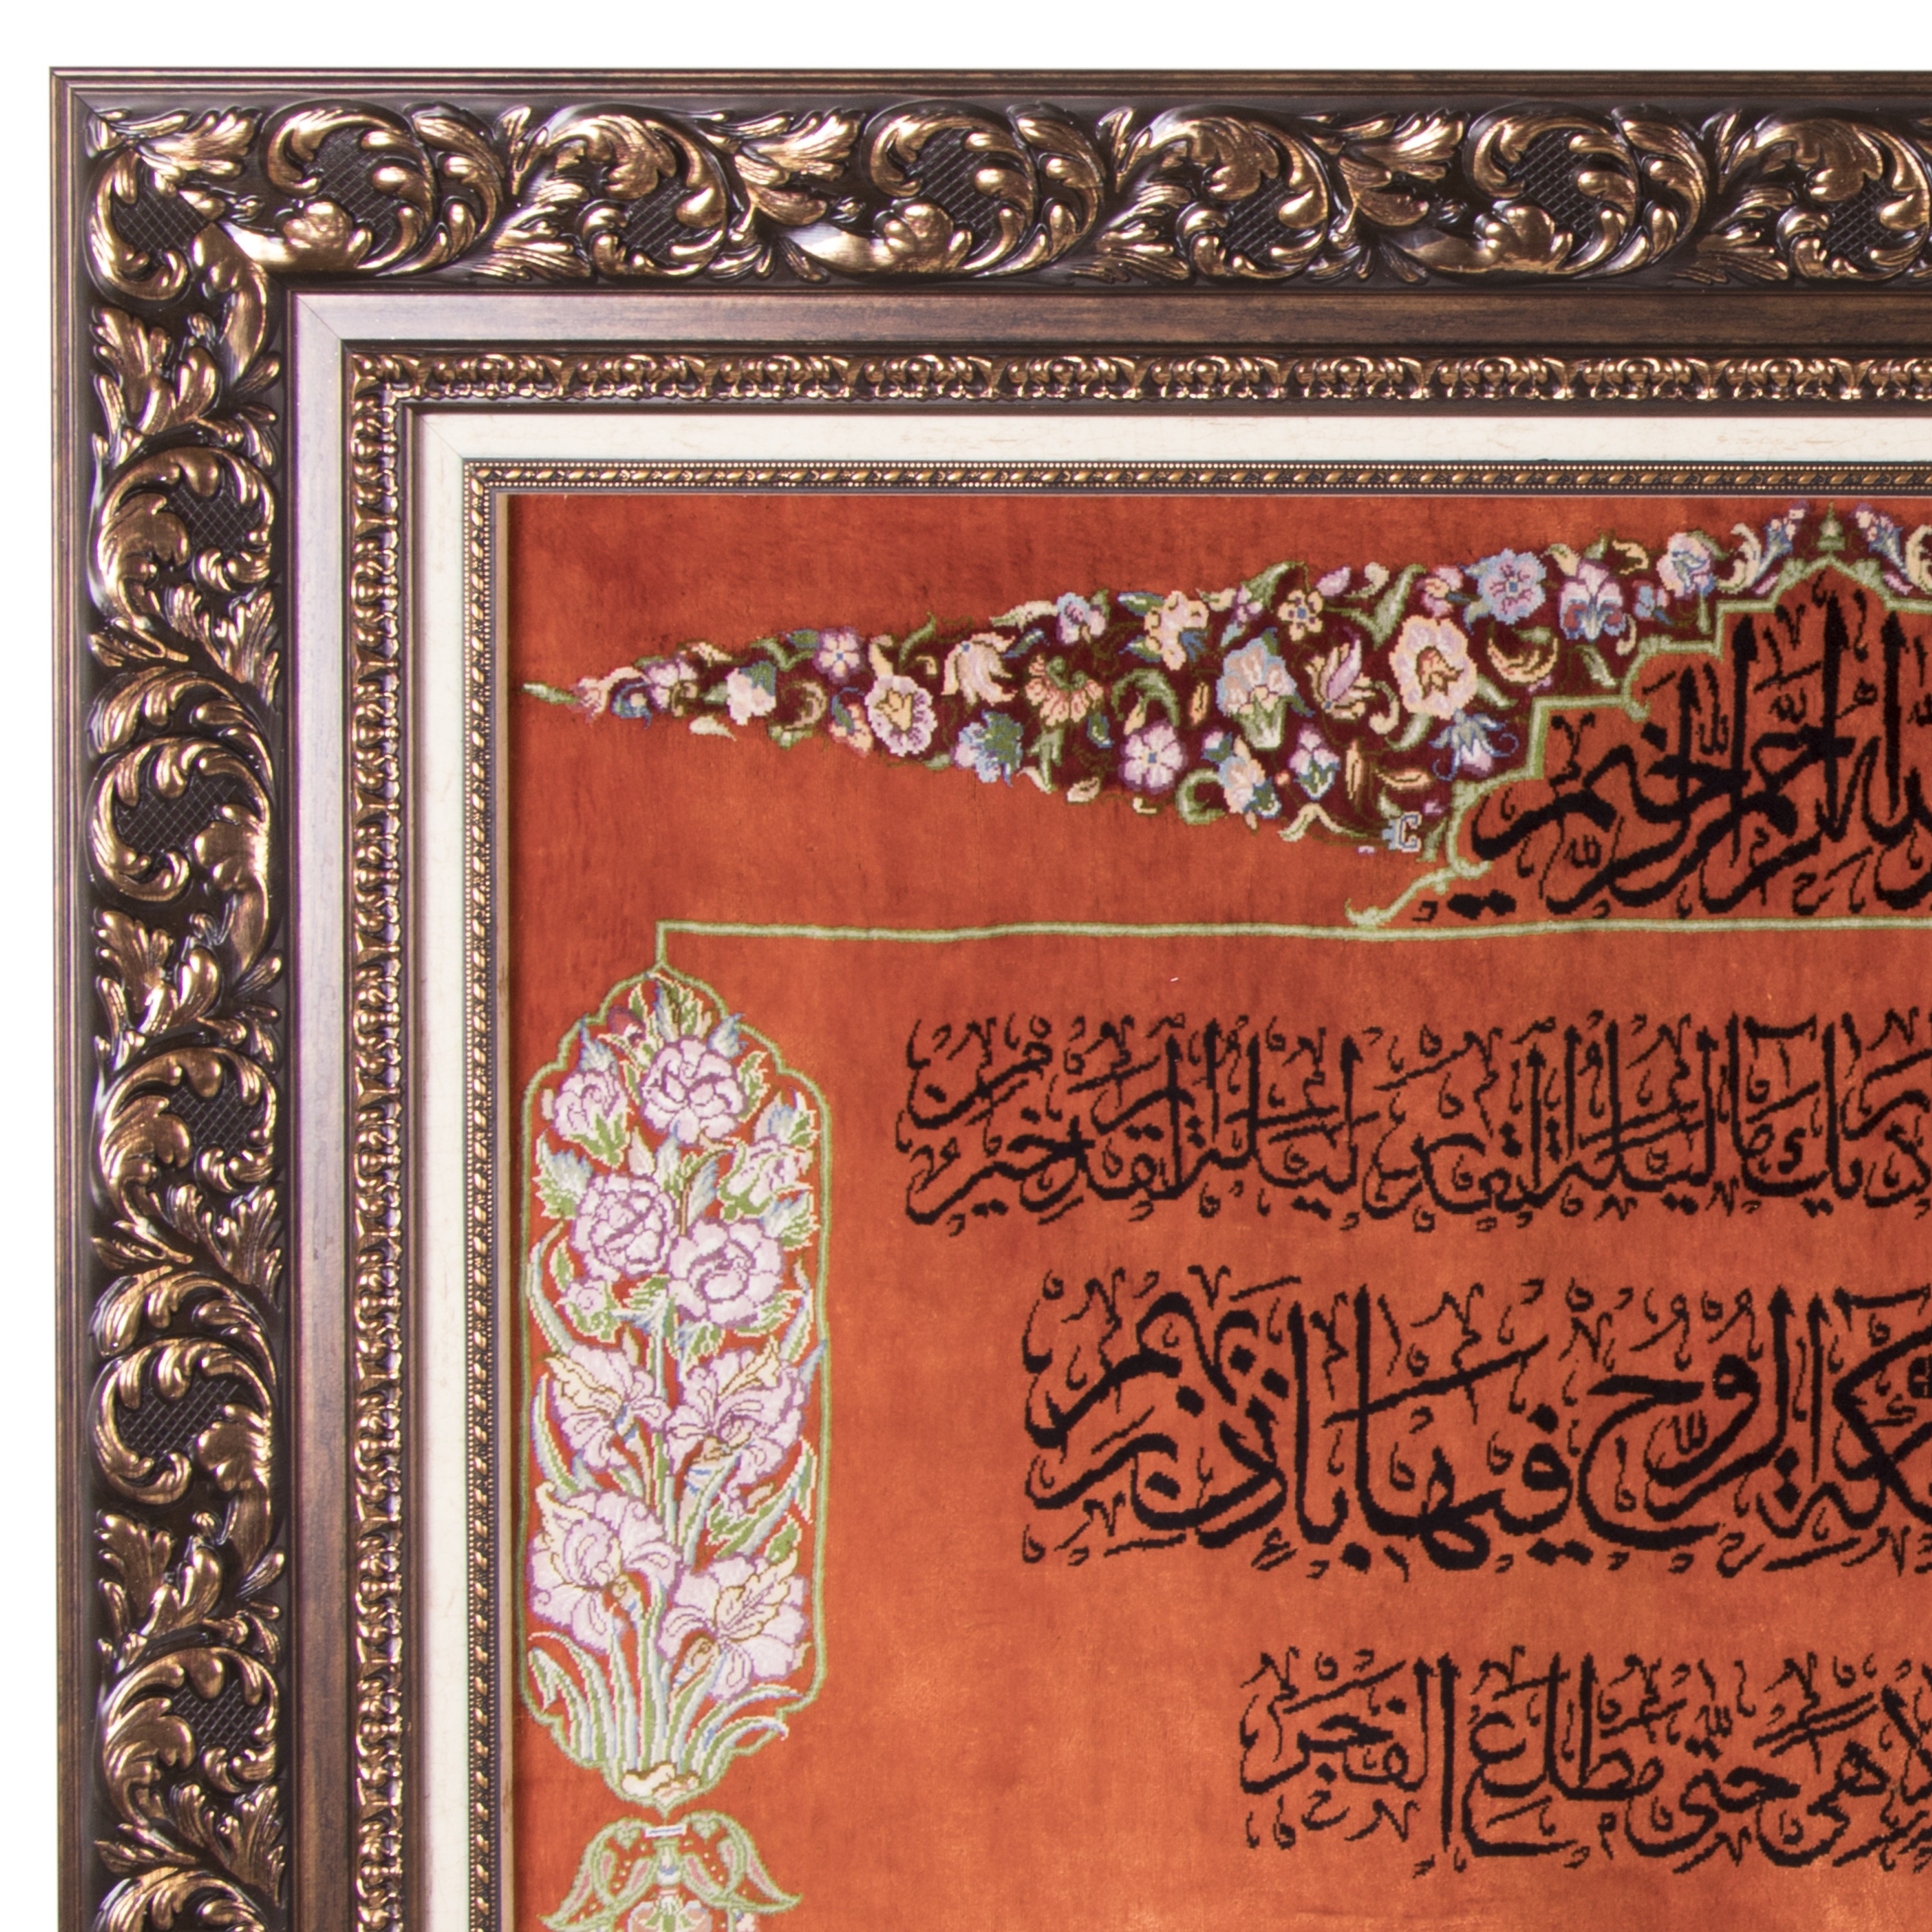 الله الرحمن الرحیم
أدراك ما ليلة القدر ليلة القدر خير من
ئكة والروح فيها بإذن ربهم من
هي حتى مطلع الفجر